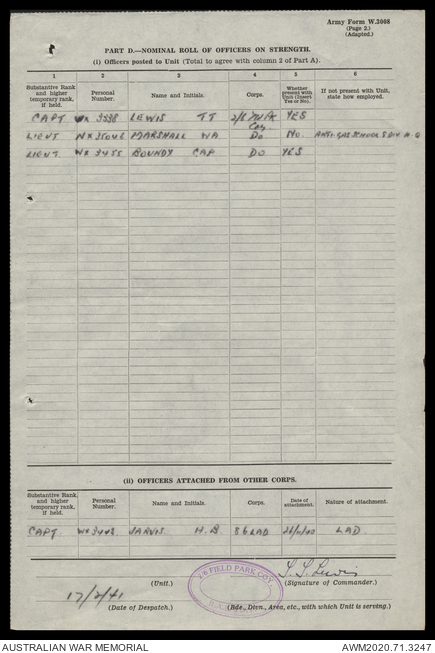 Army Form W.3008
(Page 2.)
(Adapted.)
PART D.—NOMINAL ROLL OF OFFICERS ON STRENGTH.
(i) Officers posted to Unit (Total to agree with column 2 of Part A).
1 2 3 4 5 6
Substantive Rank and higher temporary rank, if held. Personal Number. Name and Initials. Corps. Whether present with Unit (Insert Yes or No). If not present with Unit, state how employed.
CAPT WX 3338 LEWIS TT 2/6 Fd Pk Coy. YES
LIEUT WX MARSHALL WA Do No. ANTI-GAS SCHOOL
LIEUT. WX 3455 BOUNDY CAP DO YES
(ii) OFFICERS ATTACHED FROM OTHER CORPS.
Substantive Rank and higher temporary rank, if held. Personal Number. Name and Initials. Corps. Date of attachment. Nature of attachment.
CAPT. JARVIS H.B. LAD LAD.
2/6 FIELD PARK COY.
(Unit.) (Signature of Commander.)
17/2/41
(Date of Despatch.) (Bde., Divn., Area, etc., with which Unit is serving.)
AUSTRALIAN WAR MEMORIAL AWM2020.71.3247